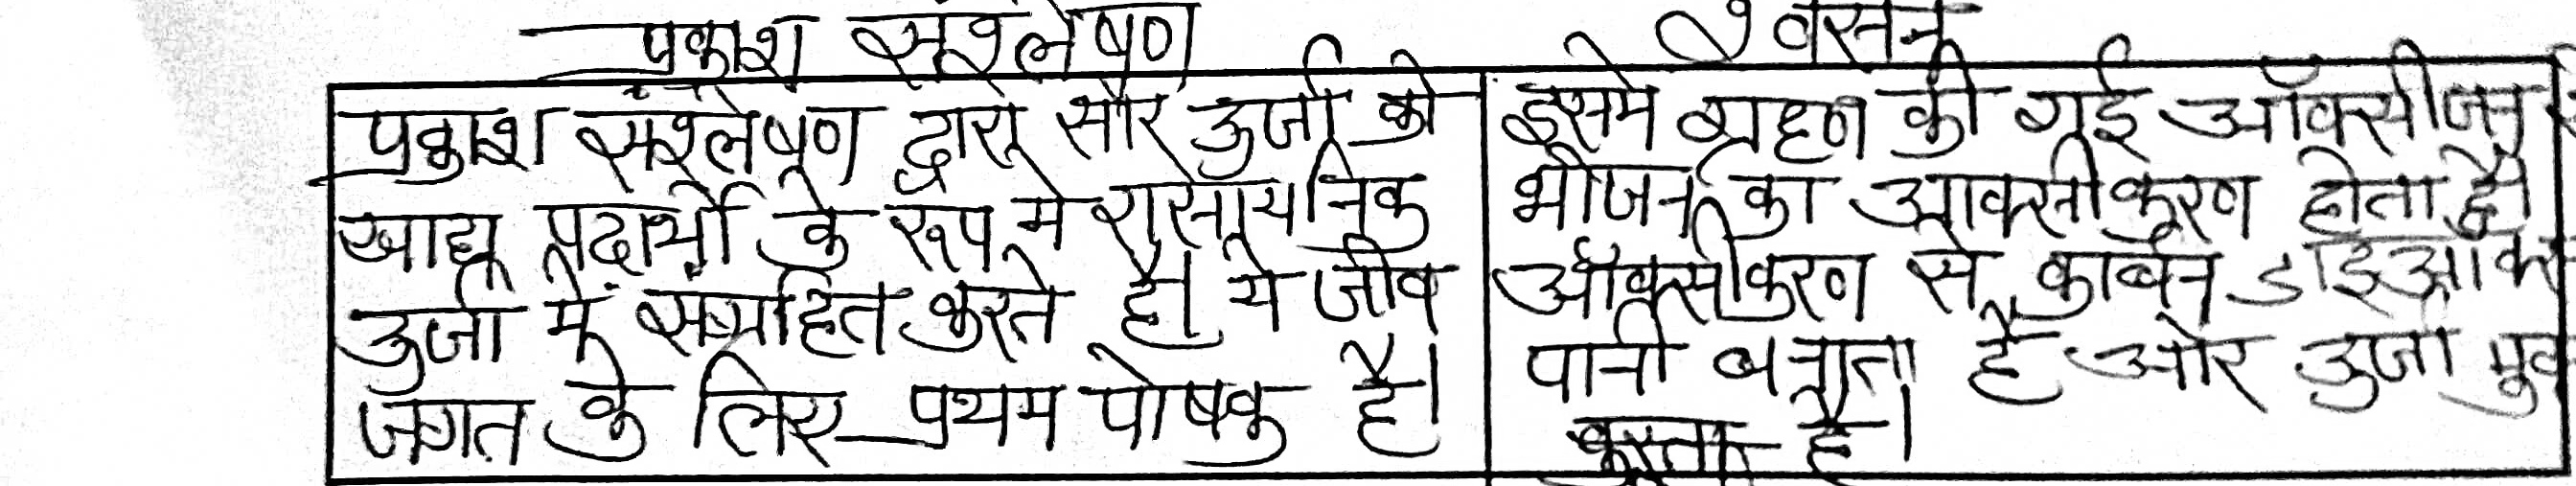 प्रकाश संश्लेषण
श्वसन
प्रकाश संश्लेषण द्वारा सौर उर्जा को
खाद्य पदार्थो के रूप मे रासायनिक
उर्जा में संग्रहित करते है। ये जीव
जगत के लिए प्रथम पोषक है।
इसमे ग्रहण की गई ऑक्सीजन
भोजन का आक्सीकरण होता है।
ऑक्सीकरण से कार्बन डाइऑक
पानी बनाता है और उर्जा मुक
करता है।